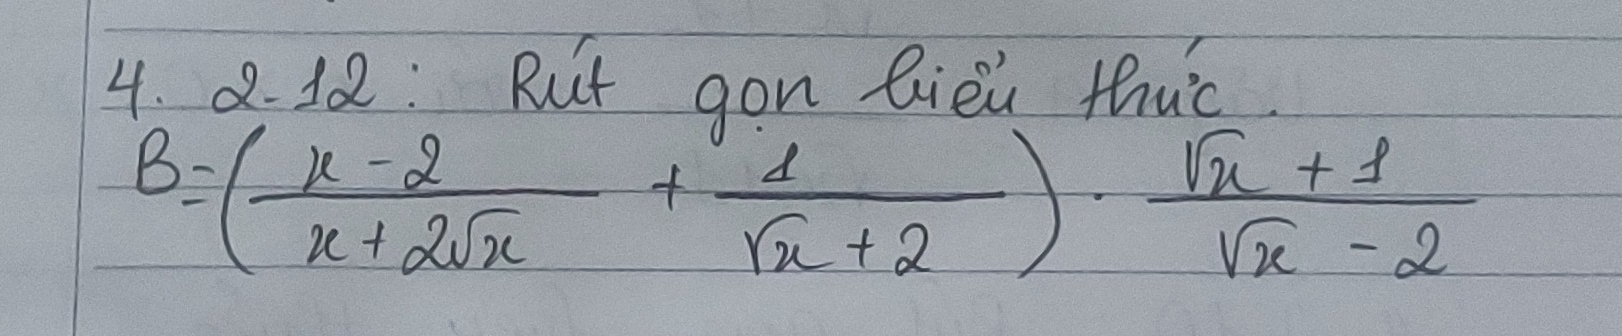 4. 2.12: Rút gọn biểu thức.
B = ( (x - 2)/(x + 2√x) + 1/(√x + 2) ) . (√x + 1)/(√x - 2)